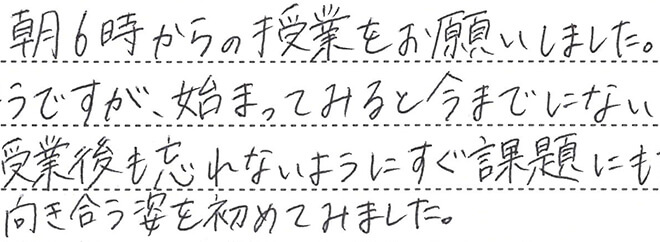 朝6時からの授業をお願いしました。
うですが、始まってみると今までにない
受業後も忘れないようにすぐ課題にも
向き合う姿を初めてみました。